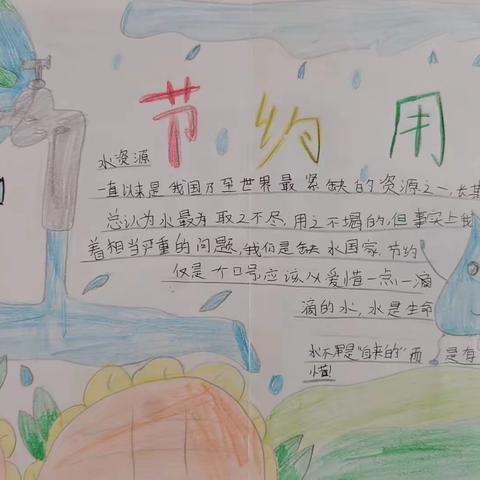 节约用
水资源
一直以来是我国乃至世界最紧缺的资源之一,长某
总认为水最为取之不尽,用之不竭的,但事实上我
着相当严重的问题,我们是缺水国家.节约
仅是个口号,应该从爱惜一点一滴
滴的水,水是生命
水不是"自来的"而是有
惜!